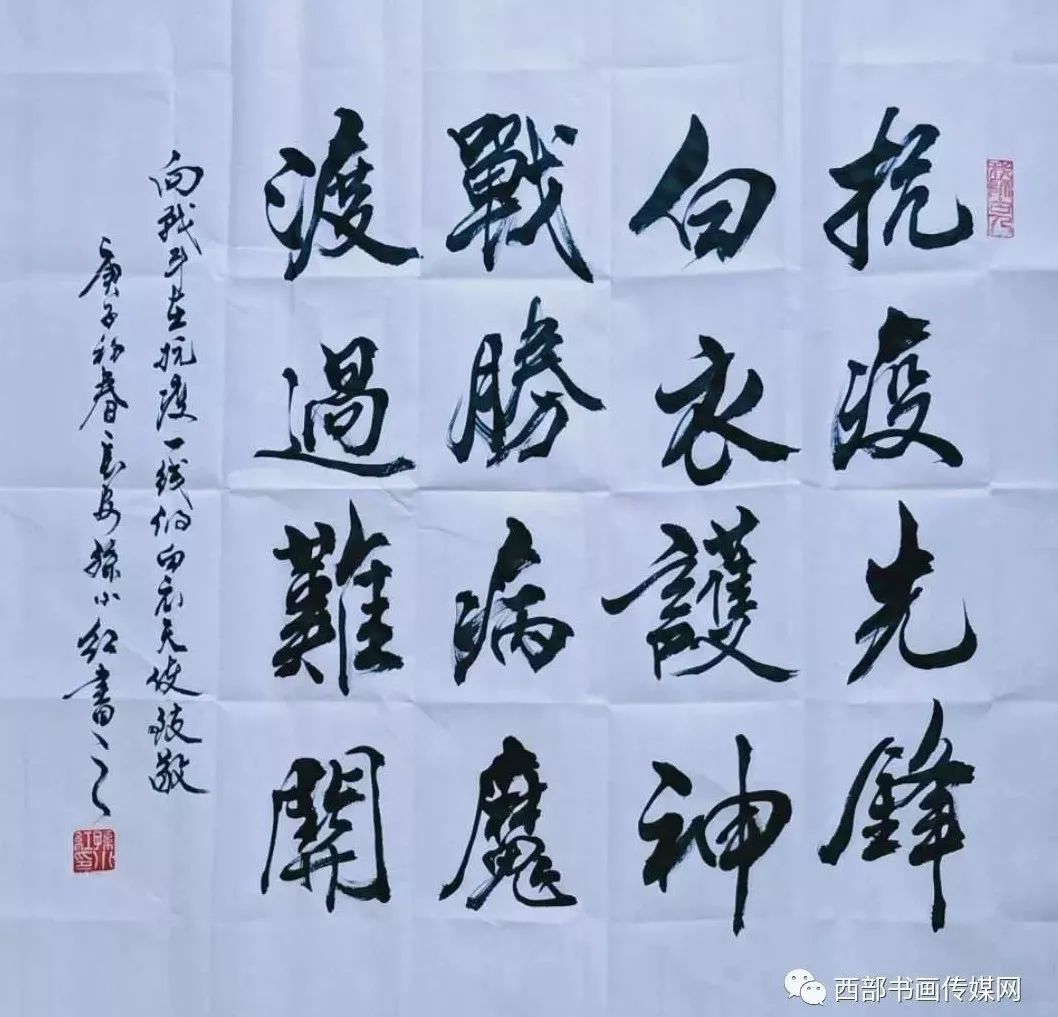 抗疫先鋒
白衣護神
戰勝病魔
渡過難開
向战斗在抗疫一线的白衣天使致敬
庚子初春長安孫小紅書
西部书画传媒网